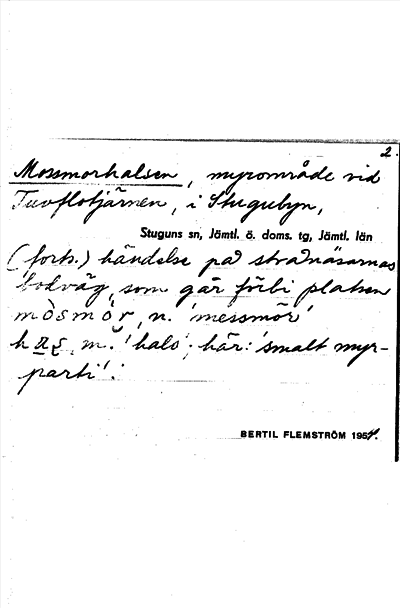 2.
Mossmorhalsen, myrområde vid
Tuvflotjärnen, i Stugubyn,
Stuguns sn, Jämtl. ö. doms. tg, Jämtl. län
(forts.) händelse på strånäsarnas
bodväg, som går förbi platsen
mòsmór, n. 'messmör'
m. 'hals', här: 'smalt myr-
parti'.
BERTIL FLEMSTRÖM 195